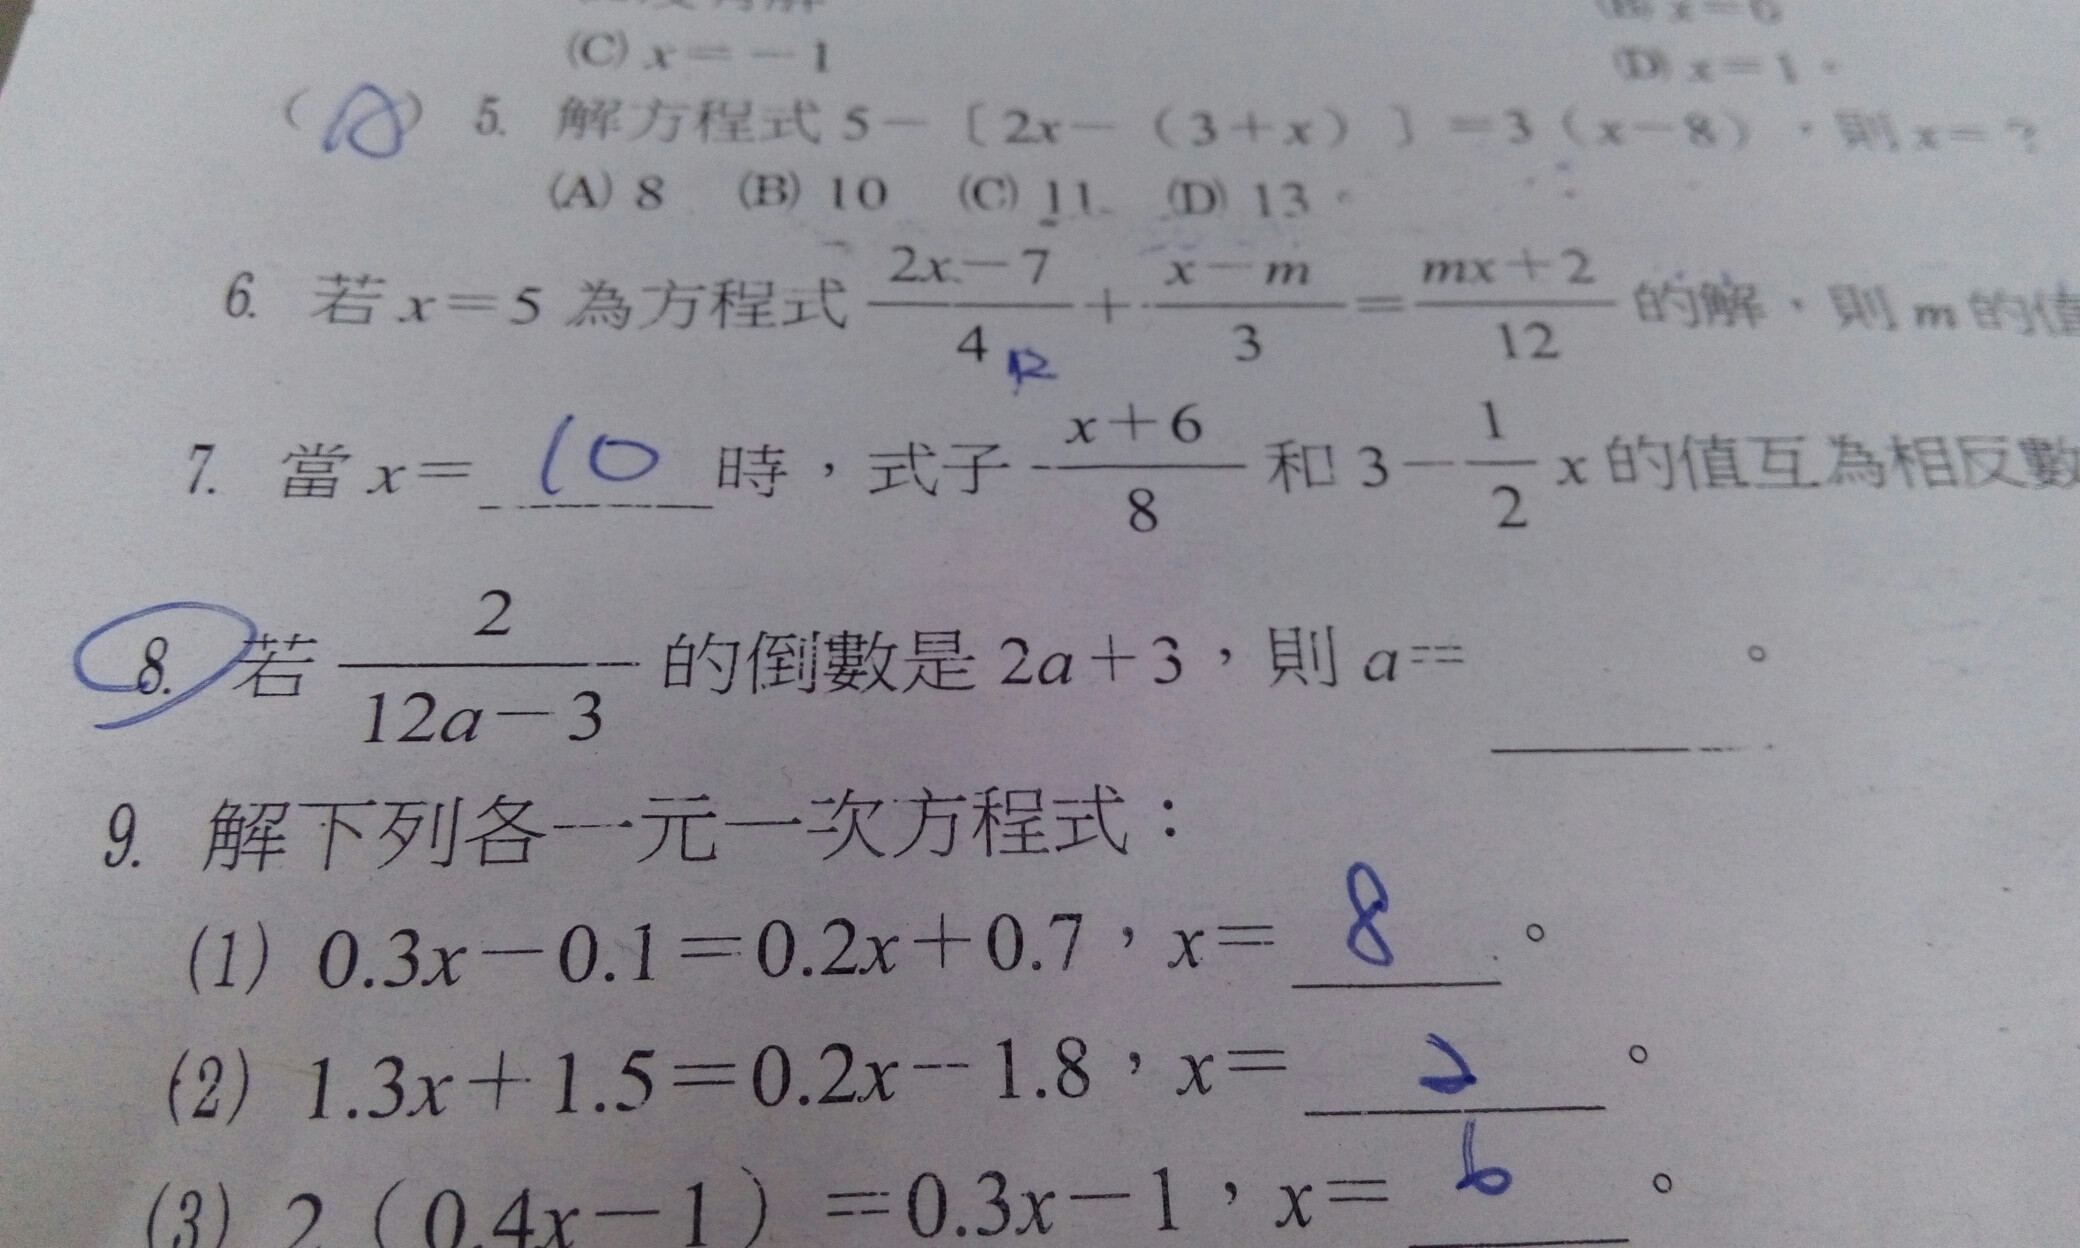 (C) x＝－1
(D) x＝1。
( ) 5. 解方程式 5－〔2x－（3＋x）〕＝3（x－8），則 x＝？
(A) 8 (B) 10 (C) 11 (D) 13。
6. 若 x＝5 為方程式 (2x－7)/4 ＋ (x－m)/3 ＝ (mx＋2)/12 的解，則 m 的值
12
7. 當 x＝ 10 時，式子 (x＋6)/8 和 3－1/2 x 的值互為相反數
8. 若 2/(12a－3) 的倒數是 2a＋3，則 a＝ 。
9. 解下列各一元一次方程式：
(1) 0.3x－0.1＝0.2x＋0.7，x＝ 8 。
(2) 1.3x＋1.5＝0.2x－1.8，x＝ 2 。
(3) 2（0.4x－1）＝0.3x－1，x＝ 6 。